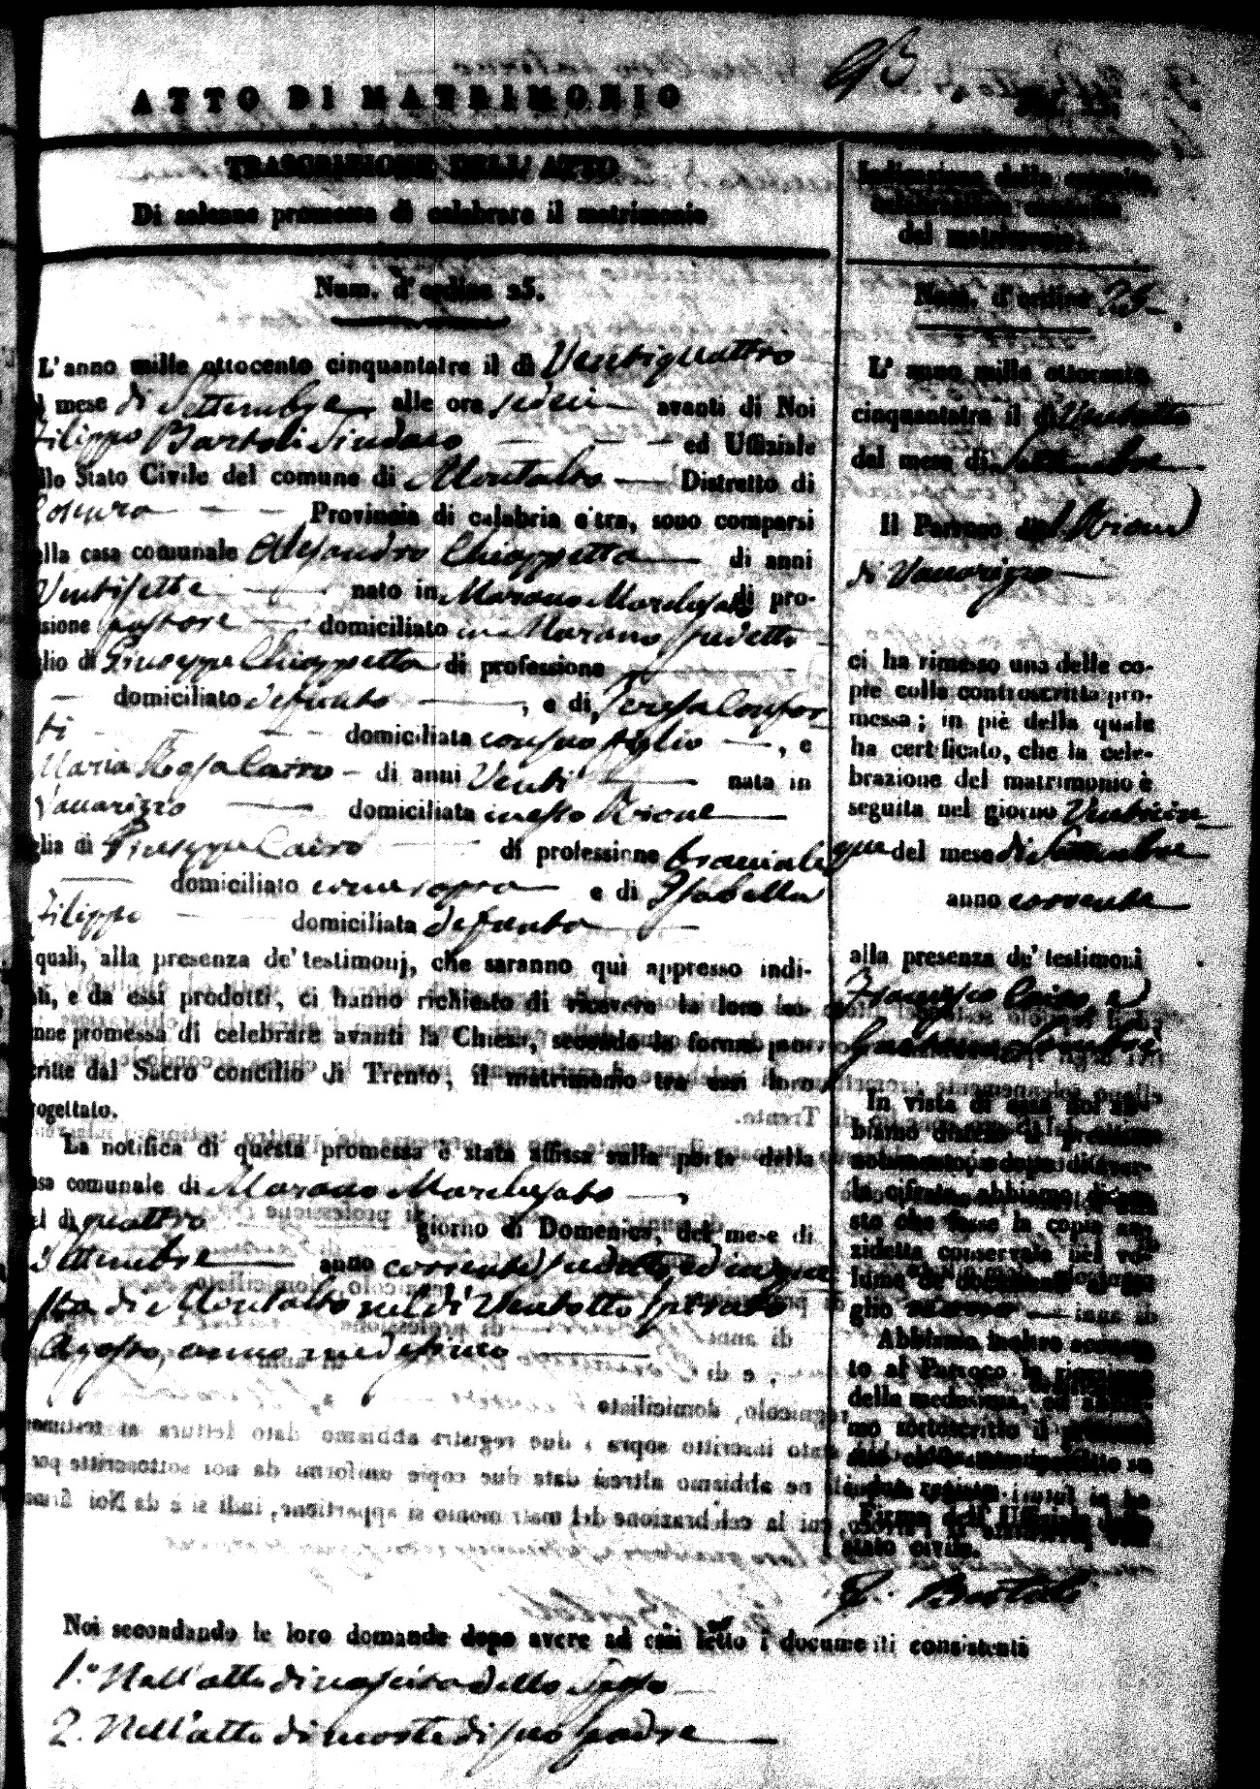 ATTO DI MATRIMONIO
TRASCRIZIONE DELL'ATTO
Di solenne promessa di celebrare il matrimonio
Num. d'ordine 25.
L'anno mille ottocento cinquantatre il dì Ventiquattro
mese di Settembre alle ore sedici avanti di Noi
Filippo Bartoli Sindaco ed Uffiziale
llo Stato Civile del comune di Montalto Distretto di
Cosenza Provincia di calabria citra, sono comparsi
lla casa comunale Alesandro Chiappetta di anni
Ventisette nato in Marano Marchesato di pro-
sione pastore domiciliato in Marano sudetto
glio di Giuseppe Chiappetta di professione
domiciliato defunto, e di Teresa Confor
ti domiciliata con suo figlio, e
Maria Rosa Cairo di anni Venti nata in
Vaccarizzo domiciliata in esso Rione
glia di Giuseppe Cairo di professione bracciale
domiciliato come sopra e di Isabella
Filippo domiciliata defunta
quali, alla presenza de' testimonj, che saranno quì appresso indi-
ti, e da essi prodotti, ci hanno richiesto di ricevere la loro so-
nne promessa di celebrare avanti la Chiesa, secondo le forme
critte dal Sacro concilio di Trento, il matrimonio tra essi loro
rogettato.
La notifica di questa promessa è stata affissa sulla porta della
asa comunale di Marano Marchesato,
el dì quattro giorno di Domenica, del mese di
Settembre anno corrente sudetto ed in que
sta di Montalto nel dì Ventotto spirato
Agosto, anno medesimo
Indicazione della seguita
celebrazione
del matrimonio.
Num. d'ordine 25
L'anno mille ottocento
cinquantatre il dì Ventotto
del mese di Settembre
Il Parroco del Rione
di Vaccarizzo
ci ha rimesso una delle co-
pie colla controscritta pro-
messa; in piè della quale
ha certificato, che la cele-
brazione del matrimonio è
seguita nel giorno Venticin-
que del mese di Settembre
anno corrente
alla presenza de' testimoni
Francesco Cairo e
In vista di essa noi ab-
biamo disteso il presente
notamento; e dopo di aver-
la cifrata abbiamo dispo-
sto che fosse la copia an-
zidetta conservata nel vo-
lume de' documenti al fo-
glio
Abbiamo inoltre accusa-
to al Parroco la ricezione
della medesima, ed abbia-
mo sottoscritto il presente
Firma dell' Uffiziale dello
stato civile.
F. Bartoli
Noi secondando le loro domande dopo avere ad essi letto i documenti consistenti
1.º Nell'atto di nascita dello Sposo
2. Nell'atto di morte di suo padre